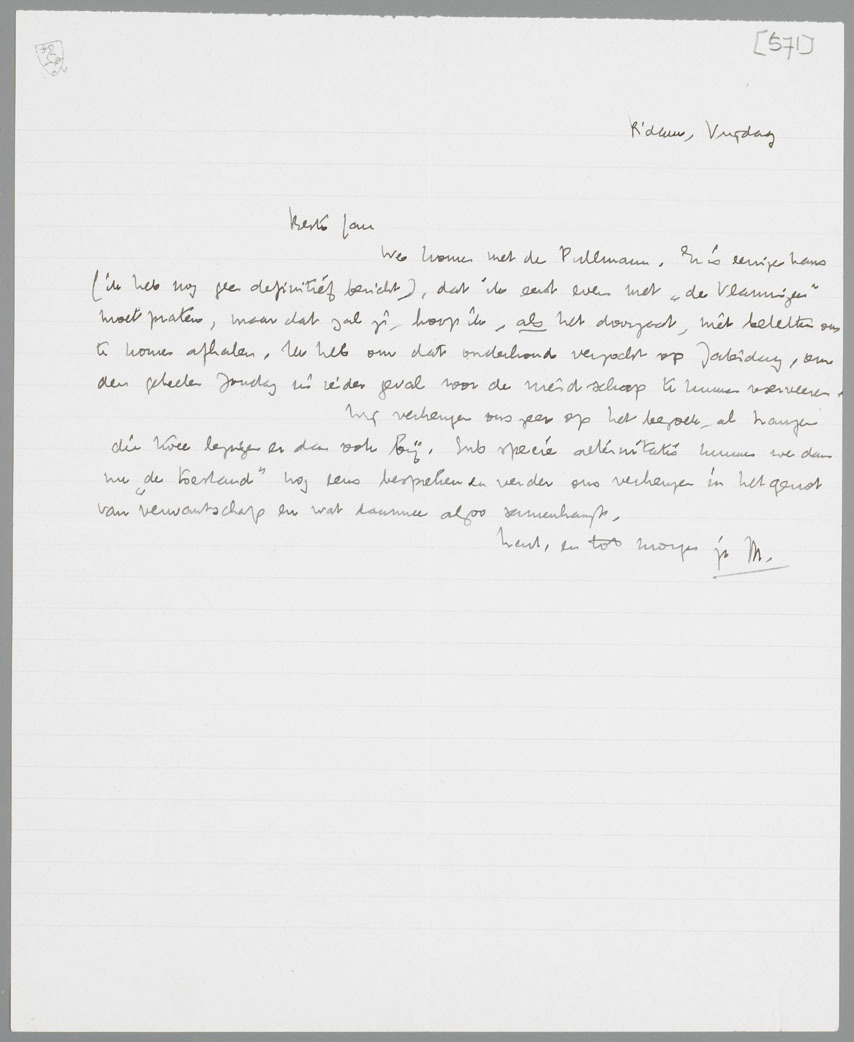 [571]
R'dam, Vrijdag
Beste Jan
We komen met de Pullmann. Er is eenige kans
(ik heb nog geen definitief bericht), dat ik eerst even met „de Vlamingen"
moet praten, maar dat zal je, hoop ik, als het doorgaat, niet beletten ons
te komen afhalen. Ik heb om dat onderhoud verzocht op Zaterdag, om
den geheelen Zondag in ieder geval voor de vriendschap te kunnen reserveeren.
Wij verheugen ons zeer op het bezoek, al hangen
die twee dan ook bij. Sub specie aeternitatis kunnen we dan
nu „de toestand" nog eens bespreken en verder ons verheugen in het genot
van verwantschap en wat daarmee alzoo samenhangt.
en tot morgen je M.